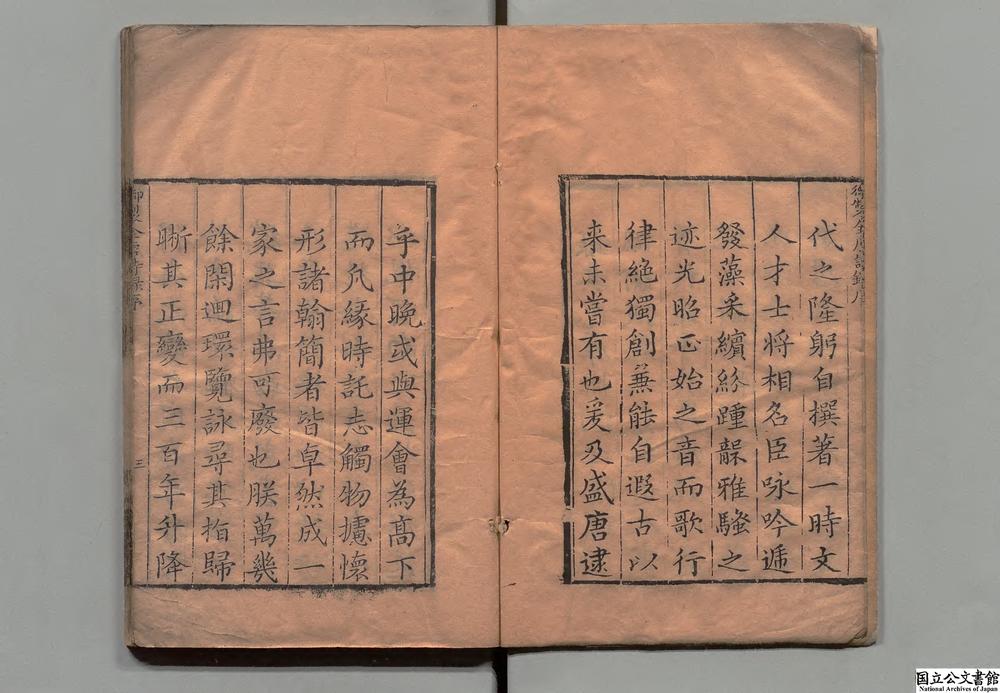 代之隆躬自撰著一時文
人才士將相名臣咏吟遞
發藻采繽紛踵襲雅騷之
迹光昭正始之音而歌行
律絶獨創兼能自遐古以
来未嘗有也爰及盛唐逮
乎中晚或與運會為髙下
而凡緣時託志觸物攄懷
形諸翰簡者皆卓然成一
家之言弗可廢也朕萬幾
餘閑迴環覽詠尋其指歸
晰其正變而三百年升降
御製全唐詩錄序
三
国立公文書館
National Archives of Japan